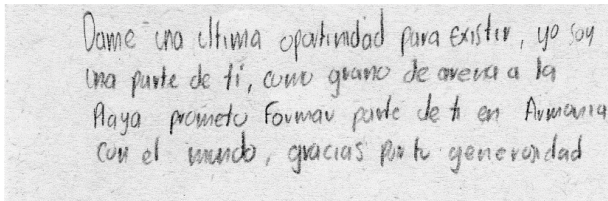 Dame una ultima oportunidad para existir, yo soy
una parte de ti, como grano de arena a la
Playa prometo Formar parte de ti en Armonia
con el mundo, gracias por tu generosidad